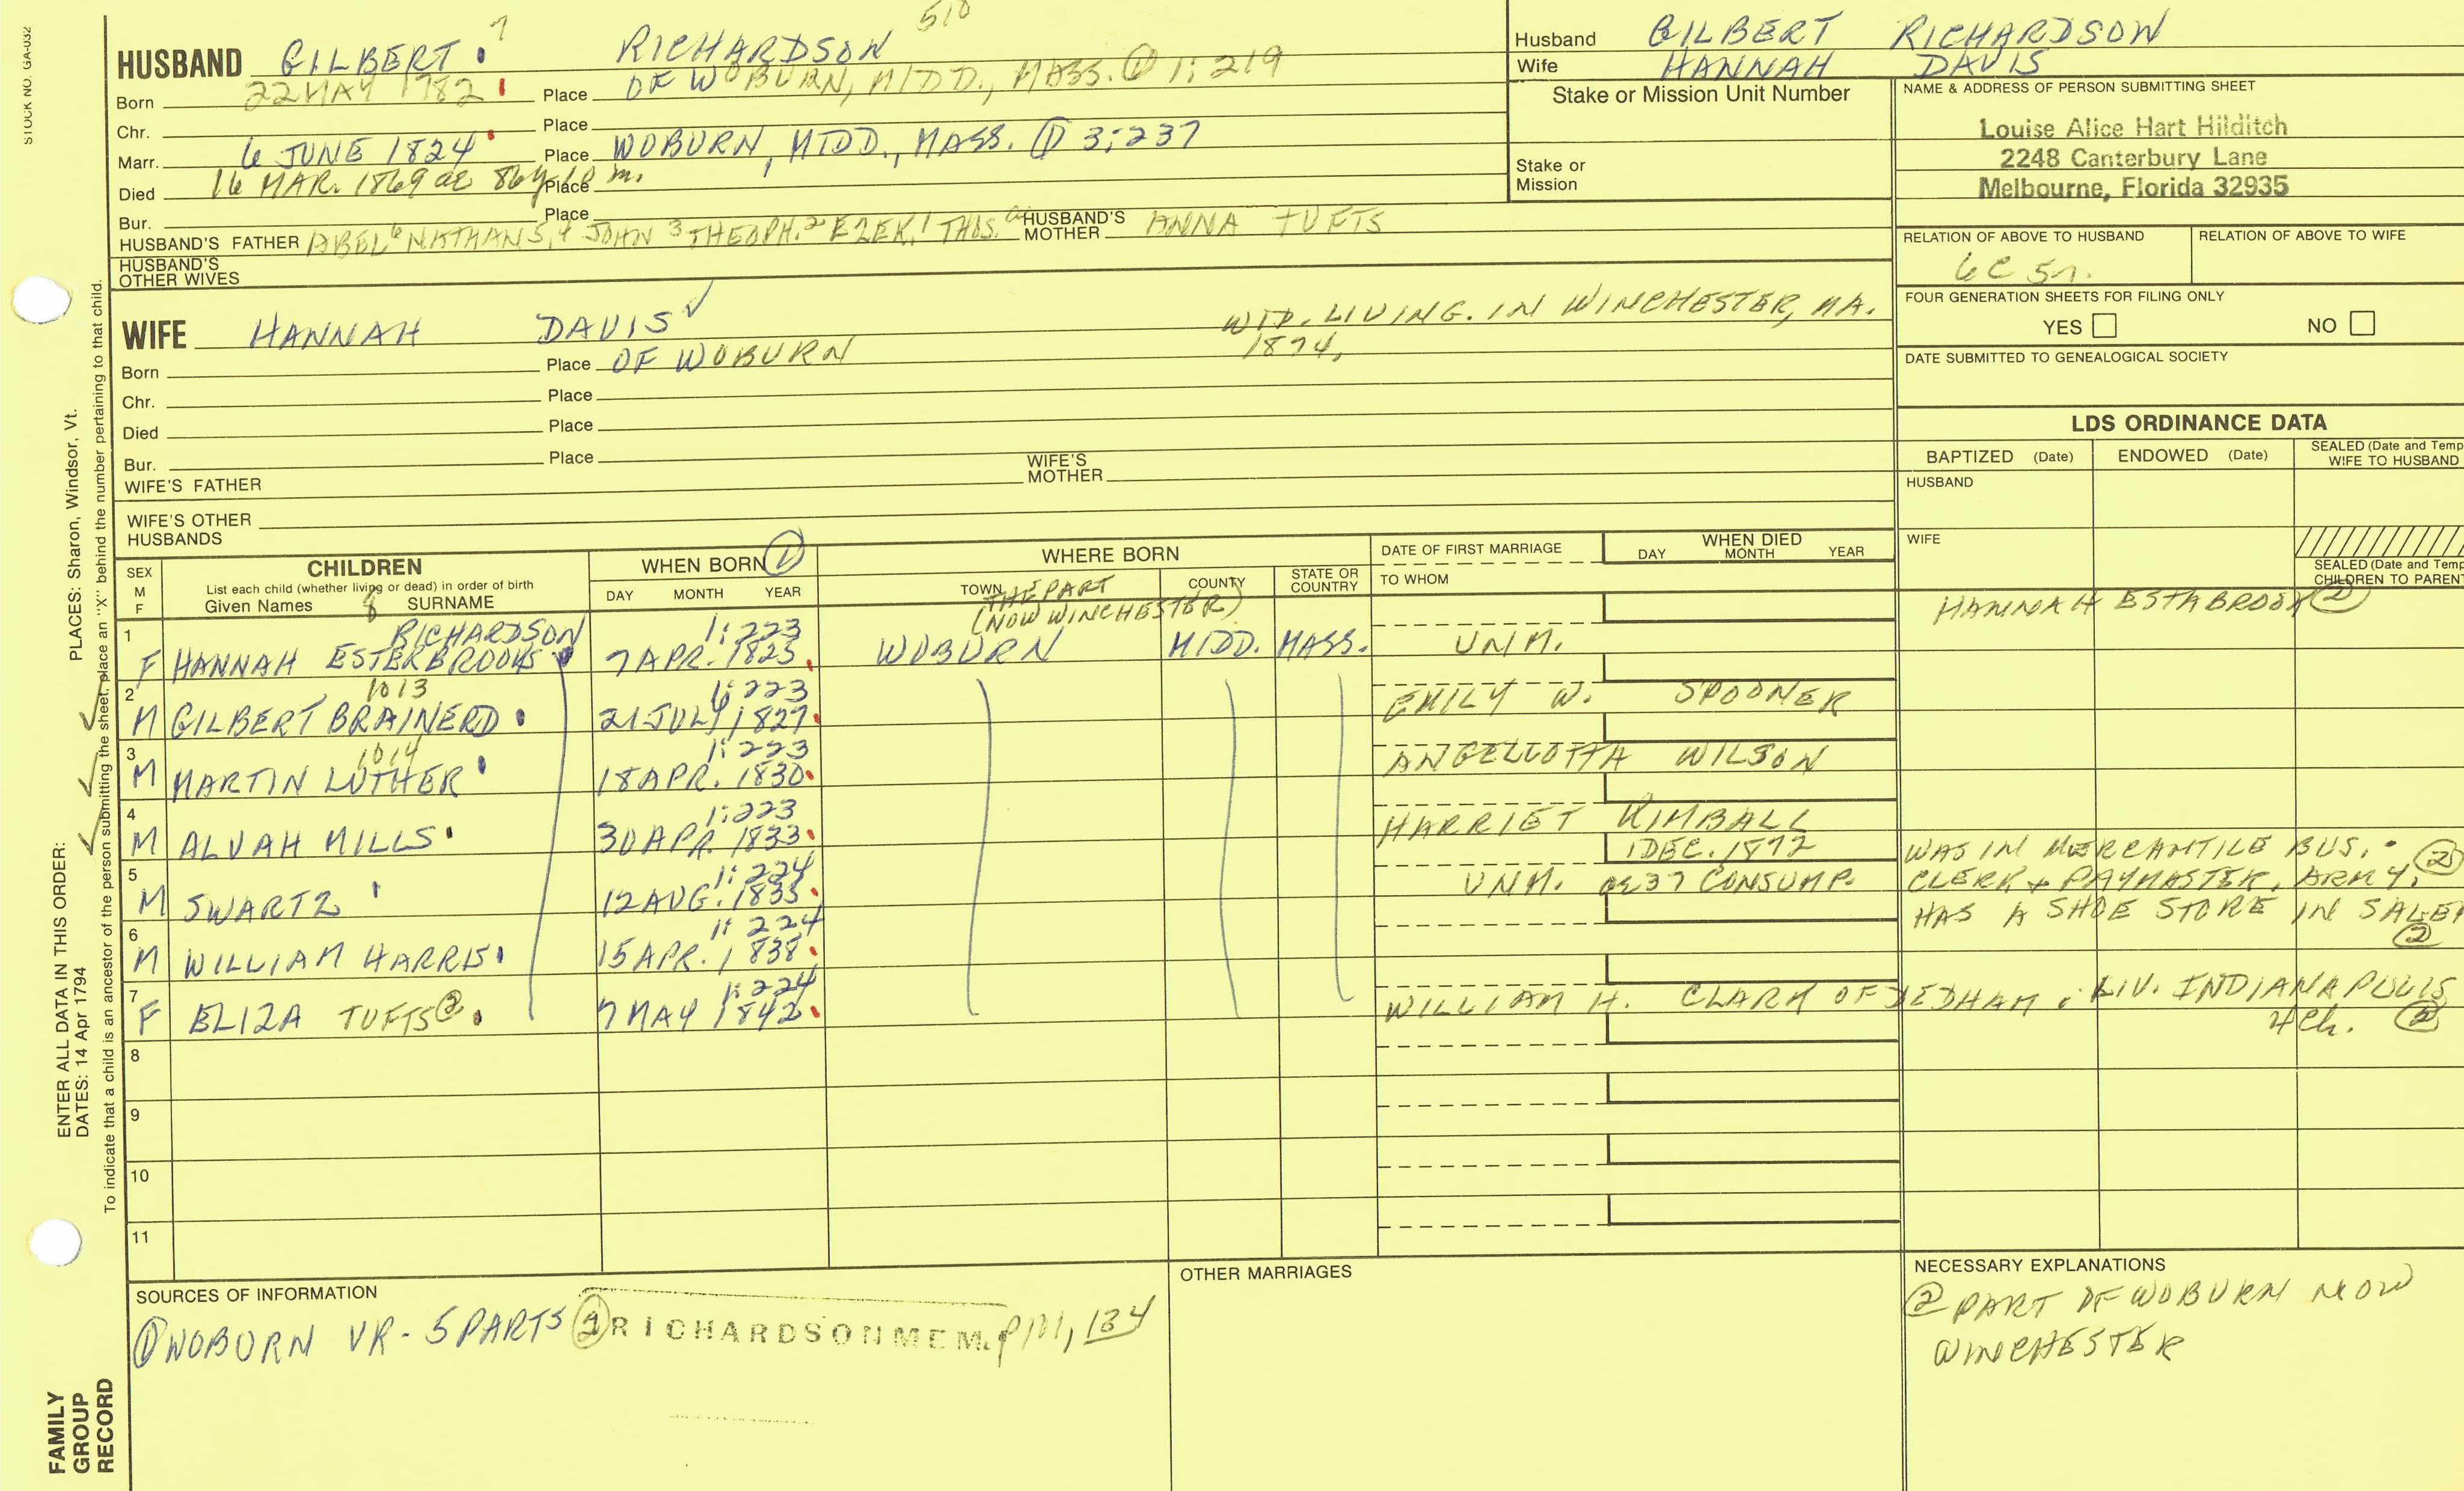 STOCK NO. GA-032
510
HUSBAND GILBERT 7 RICHARDSON
Born 22 MAY 1782 Place OF WOBURN, MIDD., MASS. ① 1:219
Chr. Place
Marr. 6 JUNE 1824 Place WOBURN, MIDD., MASS. ① 3:237
Died 16 MAR. 1869 ae 86y 10 m. Place
Bur. Place
HUSBAND'S FATHER ABEL 6 NATHAN 5, 4 JOHN 3 THEOPH. 2 EZEK. 1 THOS. a HUSBAND'S MOTHER ANNA TUFTS
HUSBAND'S OTHER WIVES
WIFE HANNAH DAVIS ✓ WID. LIVING. IN WINCHESTER, MA.
1874,
Born Place OF WOBURN
Chr. Place
Died Place
Bur. Place
WIFE'S FATHER WIFE'S MOTHER
WIFE'S OTHER HUSBANDS
Husband GILBERT RICHARDSON
Wife HANNAH DAVIS
Stake or Mission Unit Number
Stake or Mission
NAME & ADDRESS OF PERSON SUBMITTING SHEET
Louise Alice Hart Hilditch
2248 Canterbury Lane
Melbourne, Florida 32935
RELATION OF ABOVE TO HUSBAND RELATION OF ABOVE TO WIFE
6C 5r.
FOUR GENERATION SHEETS FOR FILING ONLY
YES NO
DATE SUBMITTED TO GENEALOGICAL SOCIETY
LDS ORDINANCE DATA
BAPTIZED (Date) ENDOWED (Date) SEALED (Date and Temp
WIFE TO HUSBAND
HUSBAND
WIFE
SEALED (Date and Temp
CHILDREN TO PARENT
SEX M F
CHILDREN
List each child (whether living or dead) in order of birth
Given Names 8 SURNAME
WHEN BORN ①
DAY MONTH YEAR
WHERE BORN
TOWN COUNTY STATE OR COUNTRY
THE PART
(NOW WINCHESTER)
DATE OF FIRST MARRIAGE
TO WHOM
WHEN DIED
DAY MONTH YEAR
HANNAH ESTABROOK ②
RICHARDSON 1:223
1 F HANNAH ESTERBROOKS 7 APR. 1825 WOBURN MIDD. MASS. UNM.
1013 1:223
2 M GILBERT BRAINERD 21 JULY 1827 EMILY W. SPOONER
1014 1:223
3 M MARTIN LUTHER 18 APR. 1830 ANGELLOTTA WILSON
1:223
4 M ALVAH MILLS 30 APR. 1833 HARRIET KIMBALL
1 DEC. 1872 WAS IN MERCANTILE BUS. ②
1:224
5 M SWARTZ 12 AUG. 1835 UNM. ae 37 CONSUMP. CLERK & PAYMASTER, ARMY.
HAS A SHOE STORE IN SALEM
②
1:224
6 M WILLIAM HARRIS 15 APR. 1838
1:224
7 F ELIZA TUFTS ② 7 MAY 1842 WILLIAM H. CLARK OF DEDHAM. LIV. INDIANAPOLIS
4 ch. ②
8
9
10
11
SOURCES OF INFORMATION
① WOBURN VR - 5 PARTS ② RICHARDSON MEM. 134
OTHER MARRIAGES
NECESSARY EXPLANATIONS
② PART OF WOBURN NOW
WINCHESTER
ENTER ALL DATA IN THIS ORDER:
DATES: 14 Apr 1794
PLACES: Sharon, Windsor, Vt.
To indicate that a child is an ancestor of the person submitting the sheet, place an "X" behind the number pertaining to that child.
FAMILY
GROUP
RECORD